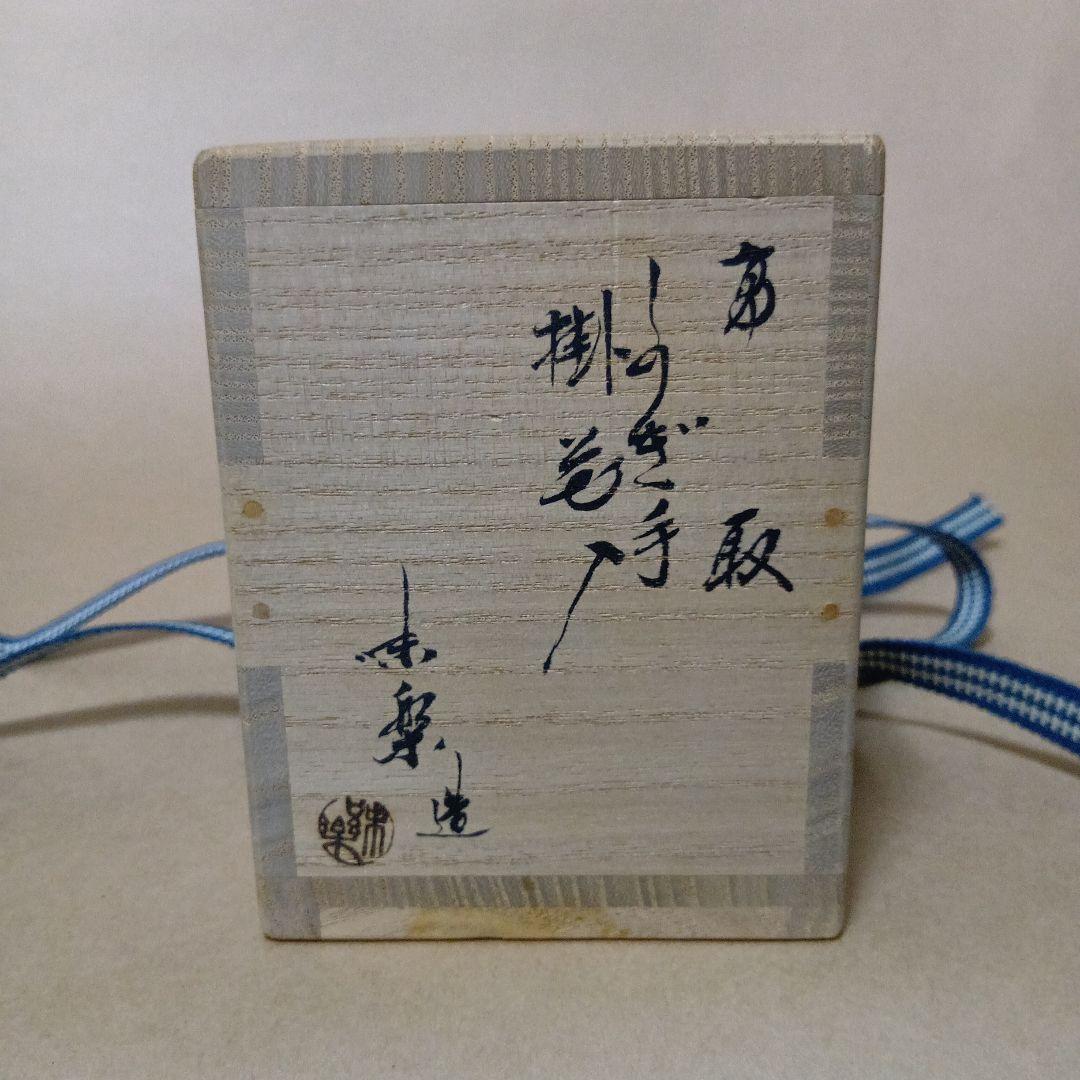 高取
しのぎ手
掛花入
味楽造
味楽